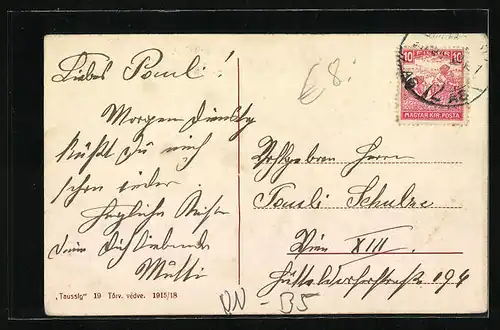 Liebes Pauli!
Morgen Dienstag
küßt du mich
schon wieder.
herzliche Küße
Deine Dich liebende
Mutti
"Taussig" 19 Törv. védve. 1915/18
€ 8.-
10 10
MAGYAR KIR. POSTA
Herrn
Pauli Schulze
Wien XIII
Hütteldorferstraße 196